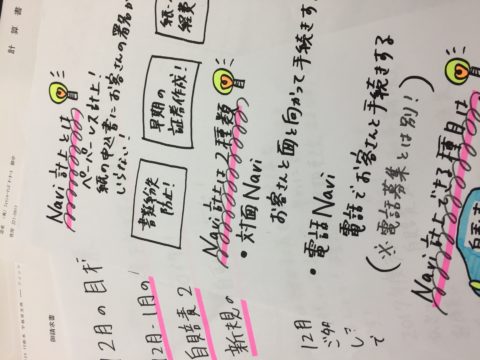 計算書
御請求書
Navi計上とは
ペーパーレス計上!
紙の申込書にお客さんの署名が
いらない!
書類紛失
防止!
早期の
証券作成!
紙・
経費
Navi計上は2種類
・対面Navi
お客さんと面と向かって手続きす
・電話Navi
電話でお客さんと手続きする
(※電話募集とは別!)
Navi計上できる種目は
12月の目
12月・1月の
自賠責2
新規の
12月